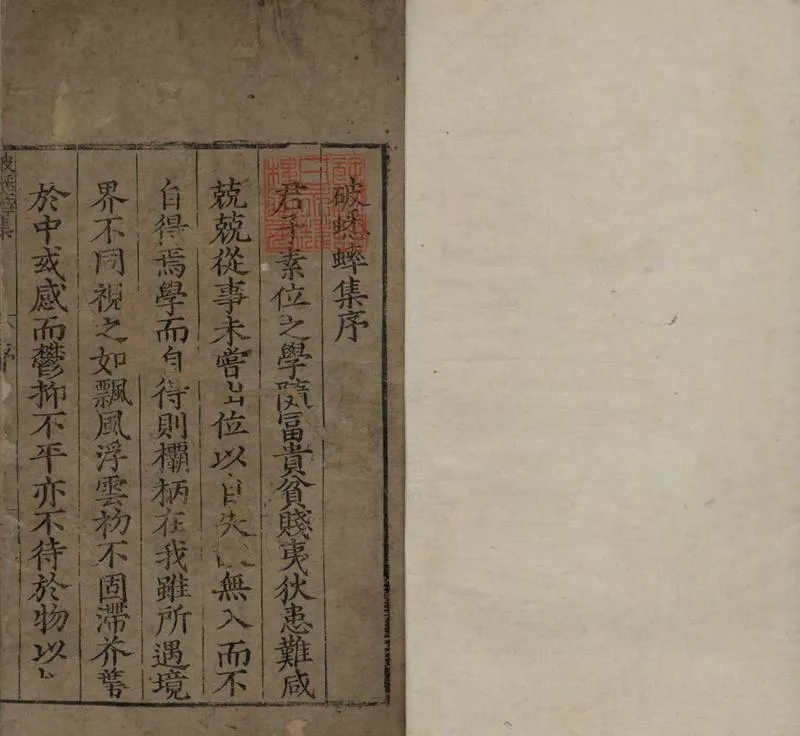 破蟋蟀集序
君子素位之學隨富貴貧賤夷狄患難咸
兢兢從事未嘗出位以自失故無入而不
自得焉學而自得則欛柄在我雖所遇境
界不同視之如飄風浮雲朸不固滯芥蔕
於中或感而鬱抑不平亦不待於物以
蟀集
序